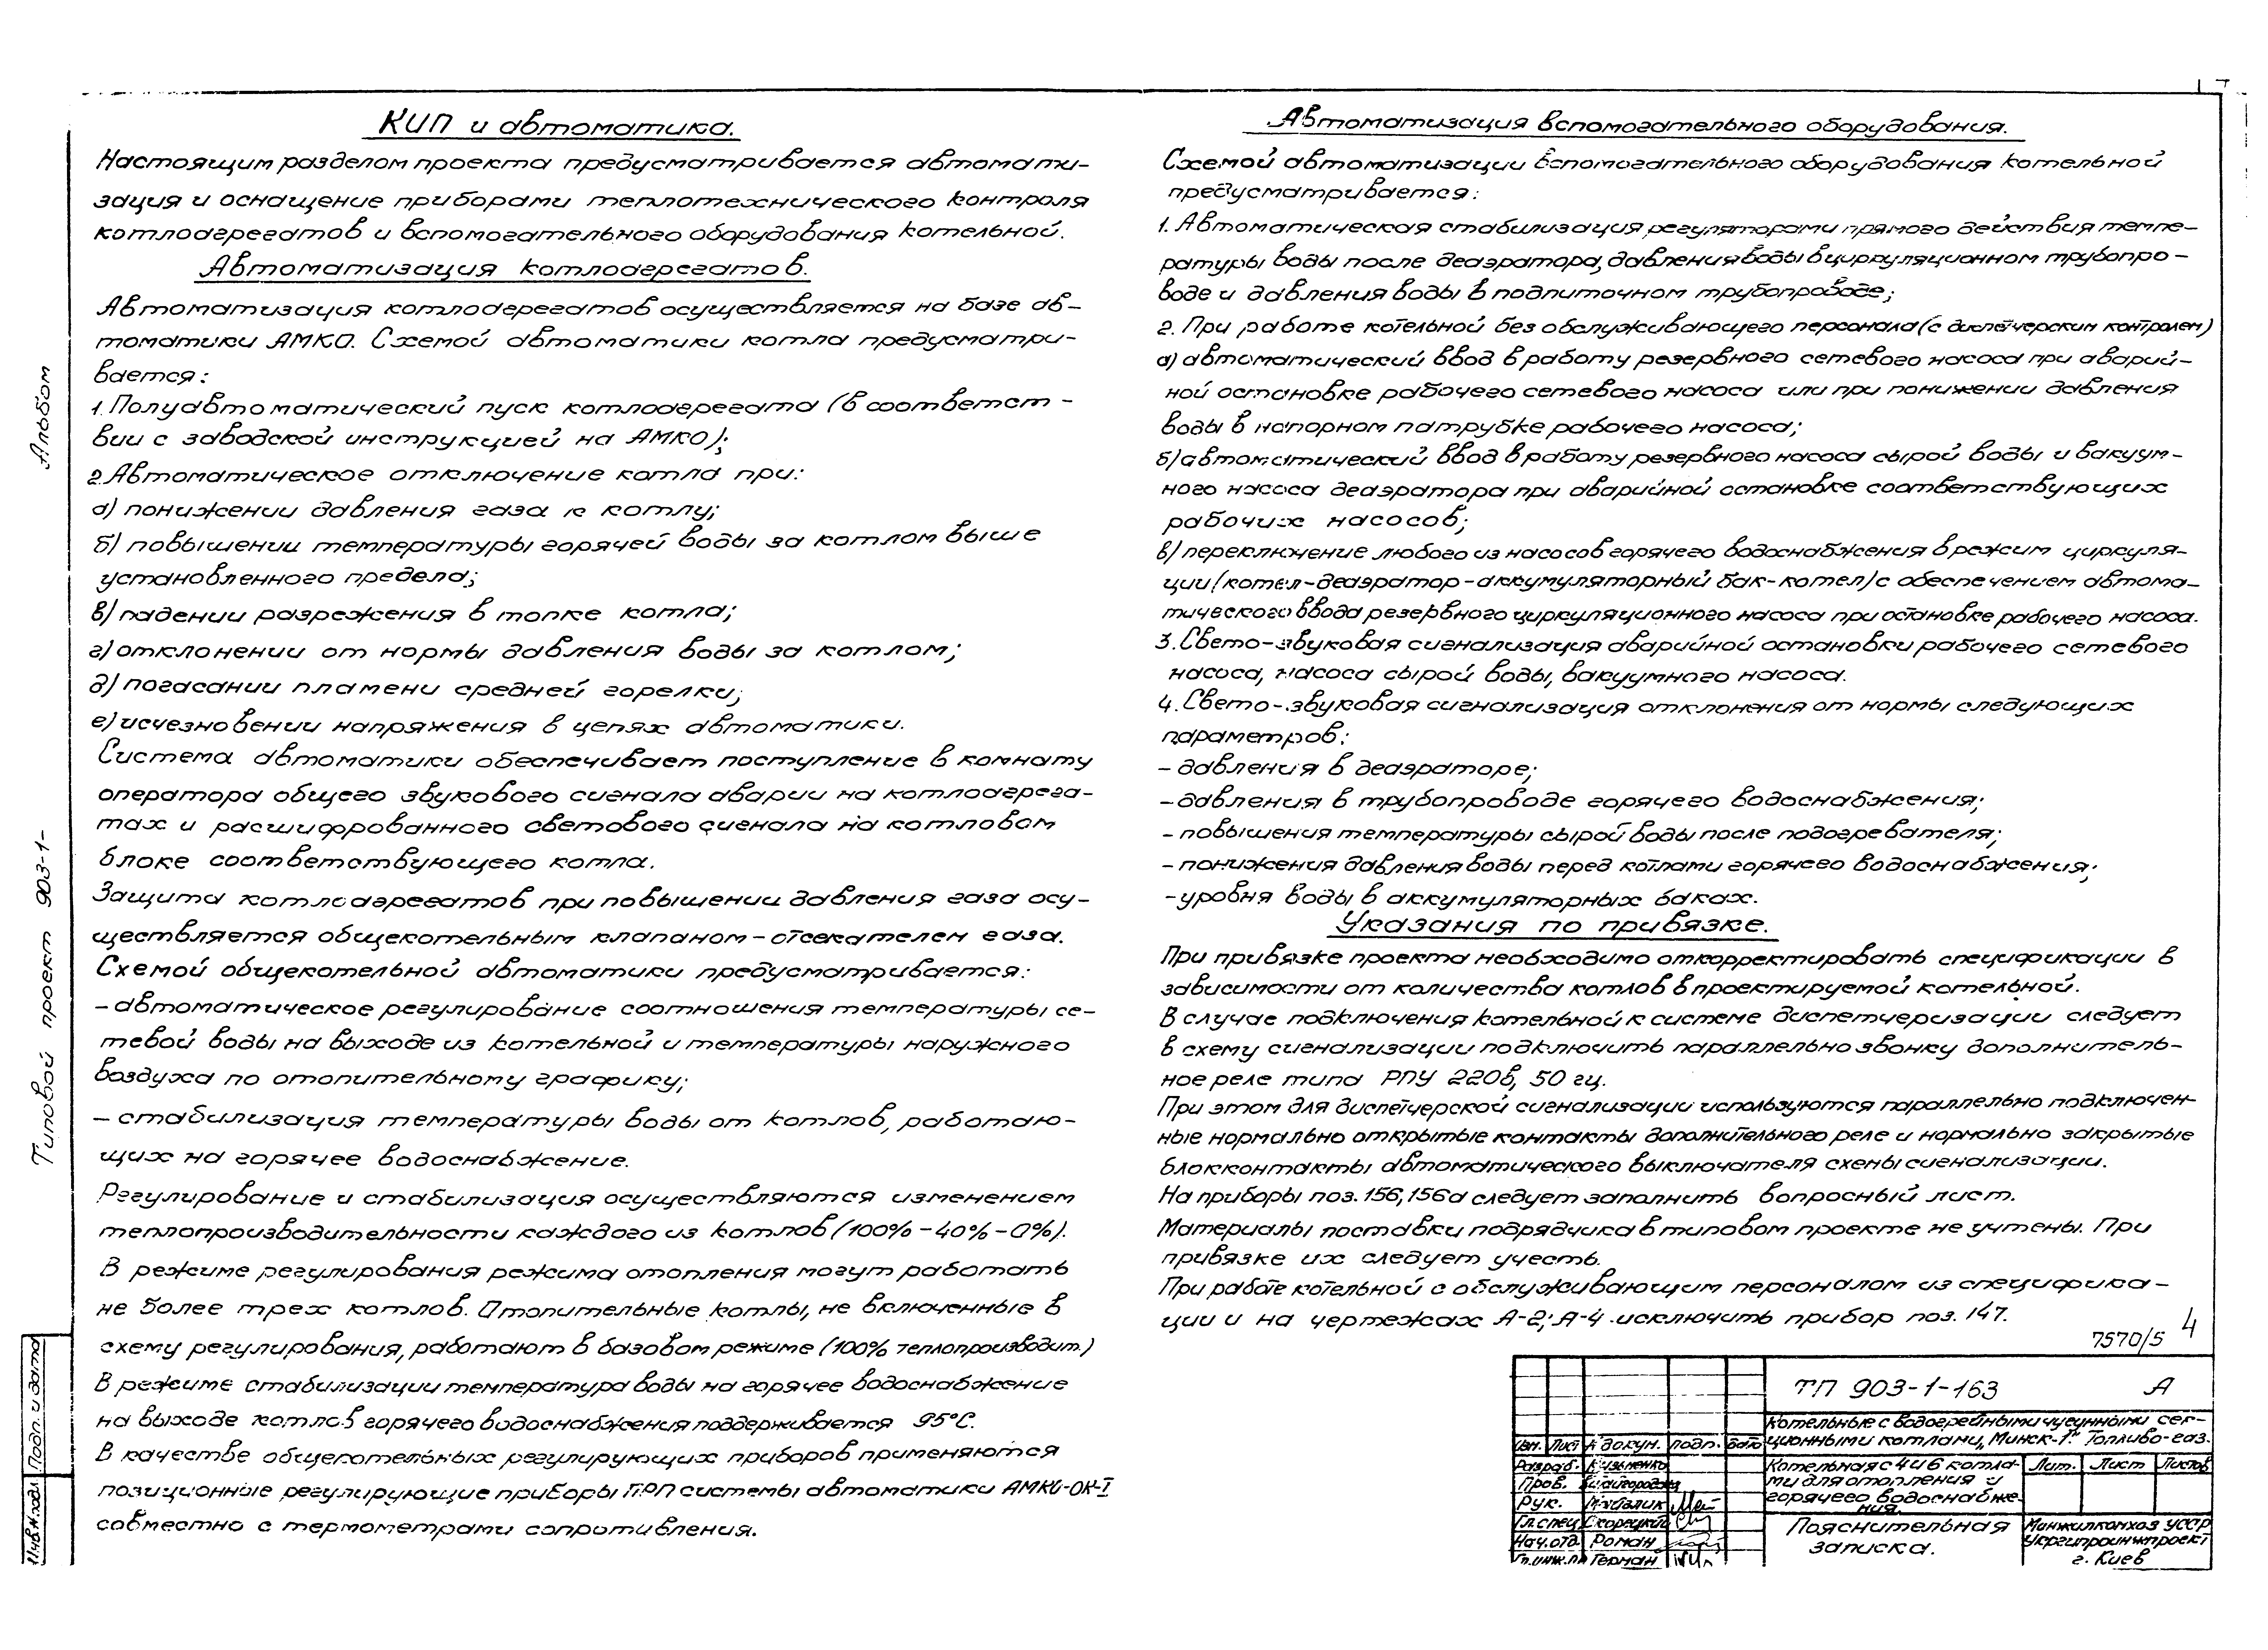 КИП и автоматика.
Настоящим разделом проекта предусматривается автомати-
зация и оснащение приборами теплотехнического контроля
котлоагрегатов и вспомогательного оборудования котельной.
Автоматизация котлоагрегатов.
Автоматизация котлоагрегатов осуществляется на базе ав-
томатики АМКО. Схемой автоматики котла предусматри-
вается:
1. Полуавтоматический пуск котлоагрегата (в соответст-
вии с заводской инструкцией на АМКО);
2. Автоматическое отключение котла при:
а) понижении давления газа к котлу;
б) повышении температуры горячей воды за котлом выше
установленного предела;
в) падении разрежения в топке котла;
г) отклонении от нормы давления воды за котлом;
д) погасании пламени средней горелки;
е) исчезновении напряжения в цепях автоматики.
Система автоматики обеспечивает поступление в комнату
оператора общего звукового сигнала аварии на котлоагрега-
тах и расшифрованного светового сигнала на котловом
блоке соответствующего котла.
Защита котлоагрегатов при повышении давления газа осу-
ществляется общекотельным клапаном-отсекателем газа.
Схемой общекотельной автоматики предусматривается:
- автоматическое регулирование соотношения температуры се-
тевой воды на выходе из котельной и температуры наружного
воздуха по отопительному графику;
- стабилизация температуры воды от котлов, работаю-
щих на горячее водоснабжение.
Регулирование и стабилизация осуществляются изменением
теплопроизводительности каждого из котлов (100% - 40% - 0%).
В режиме регулирования режима отопления могут работать
не более трех котлов. Отопительные котлы, не включенные в
схему регулирования, работают в базовом режиме (100% теплопроизводит.)
В режиме стабилизации температура воды на горячее водоснабжение
на выходе котлов горячего водоснабжения поддерживается 95°С.
В качестве общекотельных регулирующих приборов применяются
позиционные регулирующие приборы ПРП системы автоматики АМКО-ОК-I
совместно с термометрами сопротивления.
Автоматизация вспомогательного оборудования.
Схемой автоматизации вспомогательного оборудования котельной
предусматривается:
1. Автоматическая стабилизация регуляторами прямого действия темпе-
ратуры воды после деаэратора, давления воды в циркуляционном трубопро-
воде и давления воды в подпиточном трубопроводе;
2. При работе котельной без обслуживающего персонала (с диспетчерским контролем)
а) автоматический ввод в работу резервного сетевого насоса при аварий-
ной остановке рабочего сетевого насоса или при понижении давления
воды в напорном патрубке рабочего насоса;
б) автоматический ввод в работу резервного насоса сырой воды и вакуум-
ного насоса деаэратора при аварийной остановке соответствующих
рабочих насосов;
в) переключение любого из насосов горячего водоснабжения в режим циркуля-
ции (котел-деаэратор-аккумуляторный бак-котел) с обеспечением автома-
тического ввода резервного циркуляционного насоса при остановке рабочего насоса.
3. Свето-звуковая сигнализация аварийной остановки рабочего сетевого
насоса, насоса сырой воды, вакуумного насоса.
4. Свето-звуковая сигнализация отклонения от нормы следующих
параметров:
- давления в деаэраторе;
- давления в трубопроводе горячего водоснабжения;
- повышения температуры сырой воды после подогревателя;
- понижения давления воды перед котлами горячего водоснабжения;
- уровня воды в аккумуляторных баках.
Указания по привязке.
При привязке проекта необходимо откорректировать спецификации в
зависимости от количества котлов в проектируемой котельной.
В случае подключения котельной к системе диспетчеризации следует
в схему сигнализации подключить параллельно звонку дополнитель-
ное реле типа РПУ 220в, 50 гц.
При этом для диспетчерской сигнализации используются параллельно подключен-
ные нормально открытые контакты дополнительного реле и нормально закрытые
блокконтакты автоматического выключателя схемы сигнализации.
На приборы поз. 156, 156а следует заполнить вопросный лист.
Материалы поставки подрядчика в типовом проекте не учтены. При
привязке их следует учесть.
При работе котельной с обслуживающим персоналом из специфика-
ции и на чертежах А-2; А-4 исключить прибор поз. 147.
7570/5 4
ТП 903-1-163 А
Котельные с водогрейными чугунными сек-
ционными котлами „Минск-1". Топливо-газ.
Изм. Лист № докум. подп. Дата
Котельная с 4 и 6 котла-
ми для отопления и
горячего водоснабже-
ния.
Лит. Лист Листов
Разраб. Кузьменко
Пров.
Рук.
Гл.спец. Скорецкий
Нач.отд. Роман
Гл.инж.пр. Герман
Пояснительная
записка.
Минжилкомхоз УССР
Укргипроинжпроект
г. Киев
Альбом
Типовой проект 903-1-
Подп. и дата
Инв.№ подл.